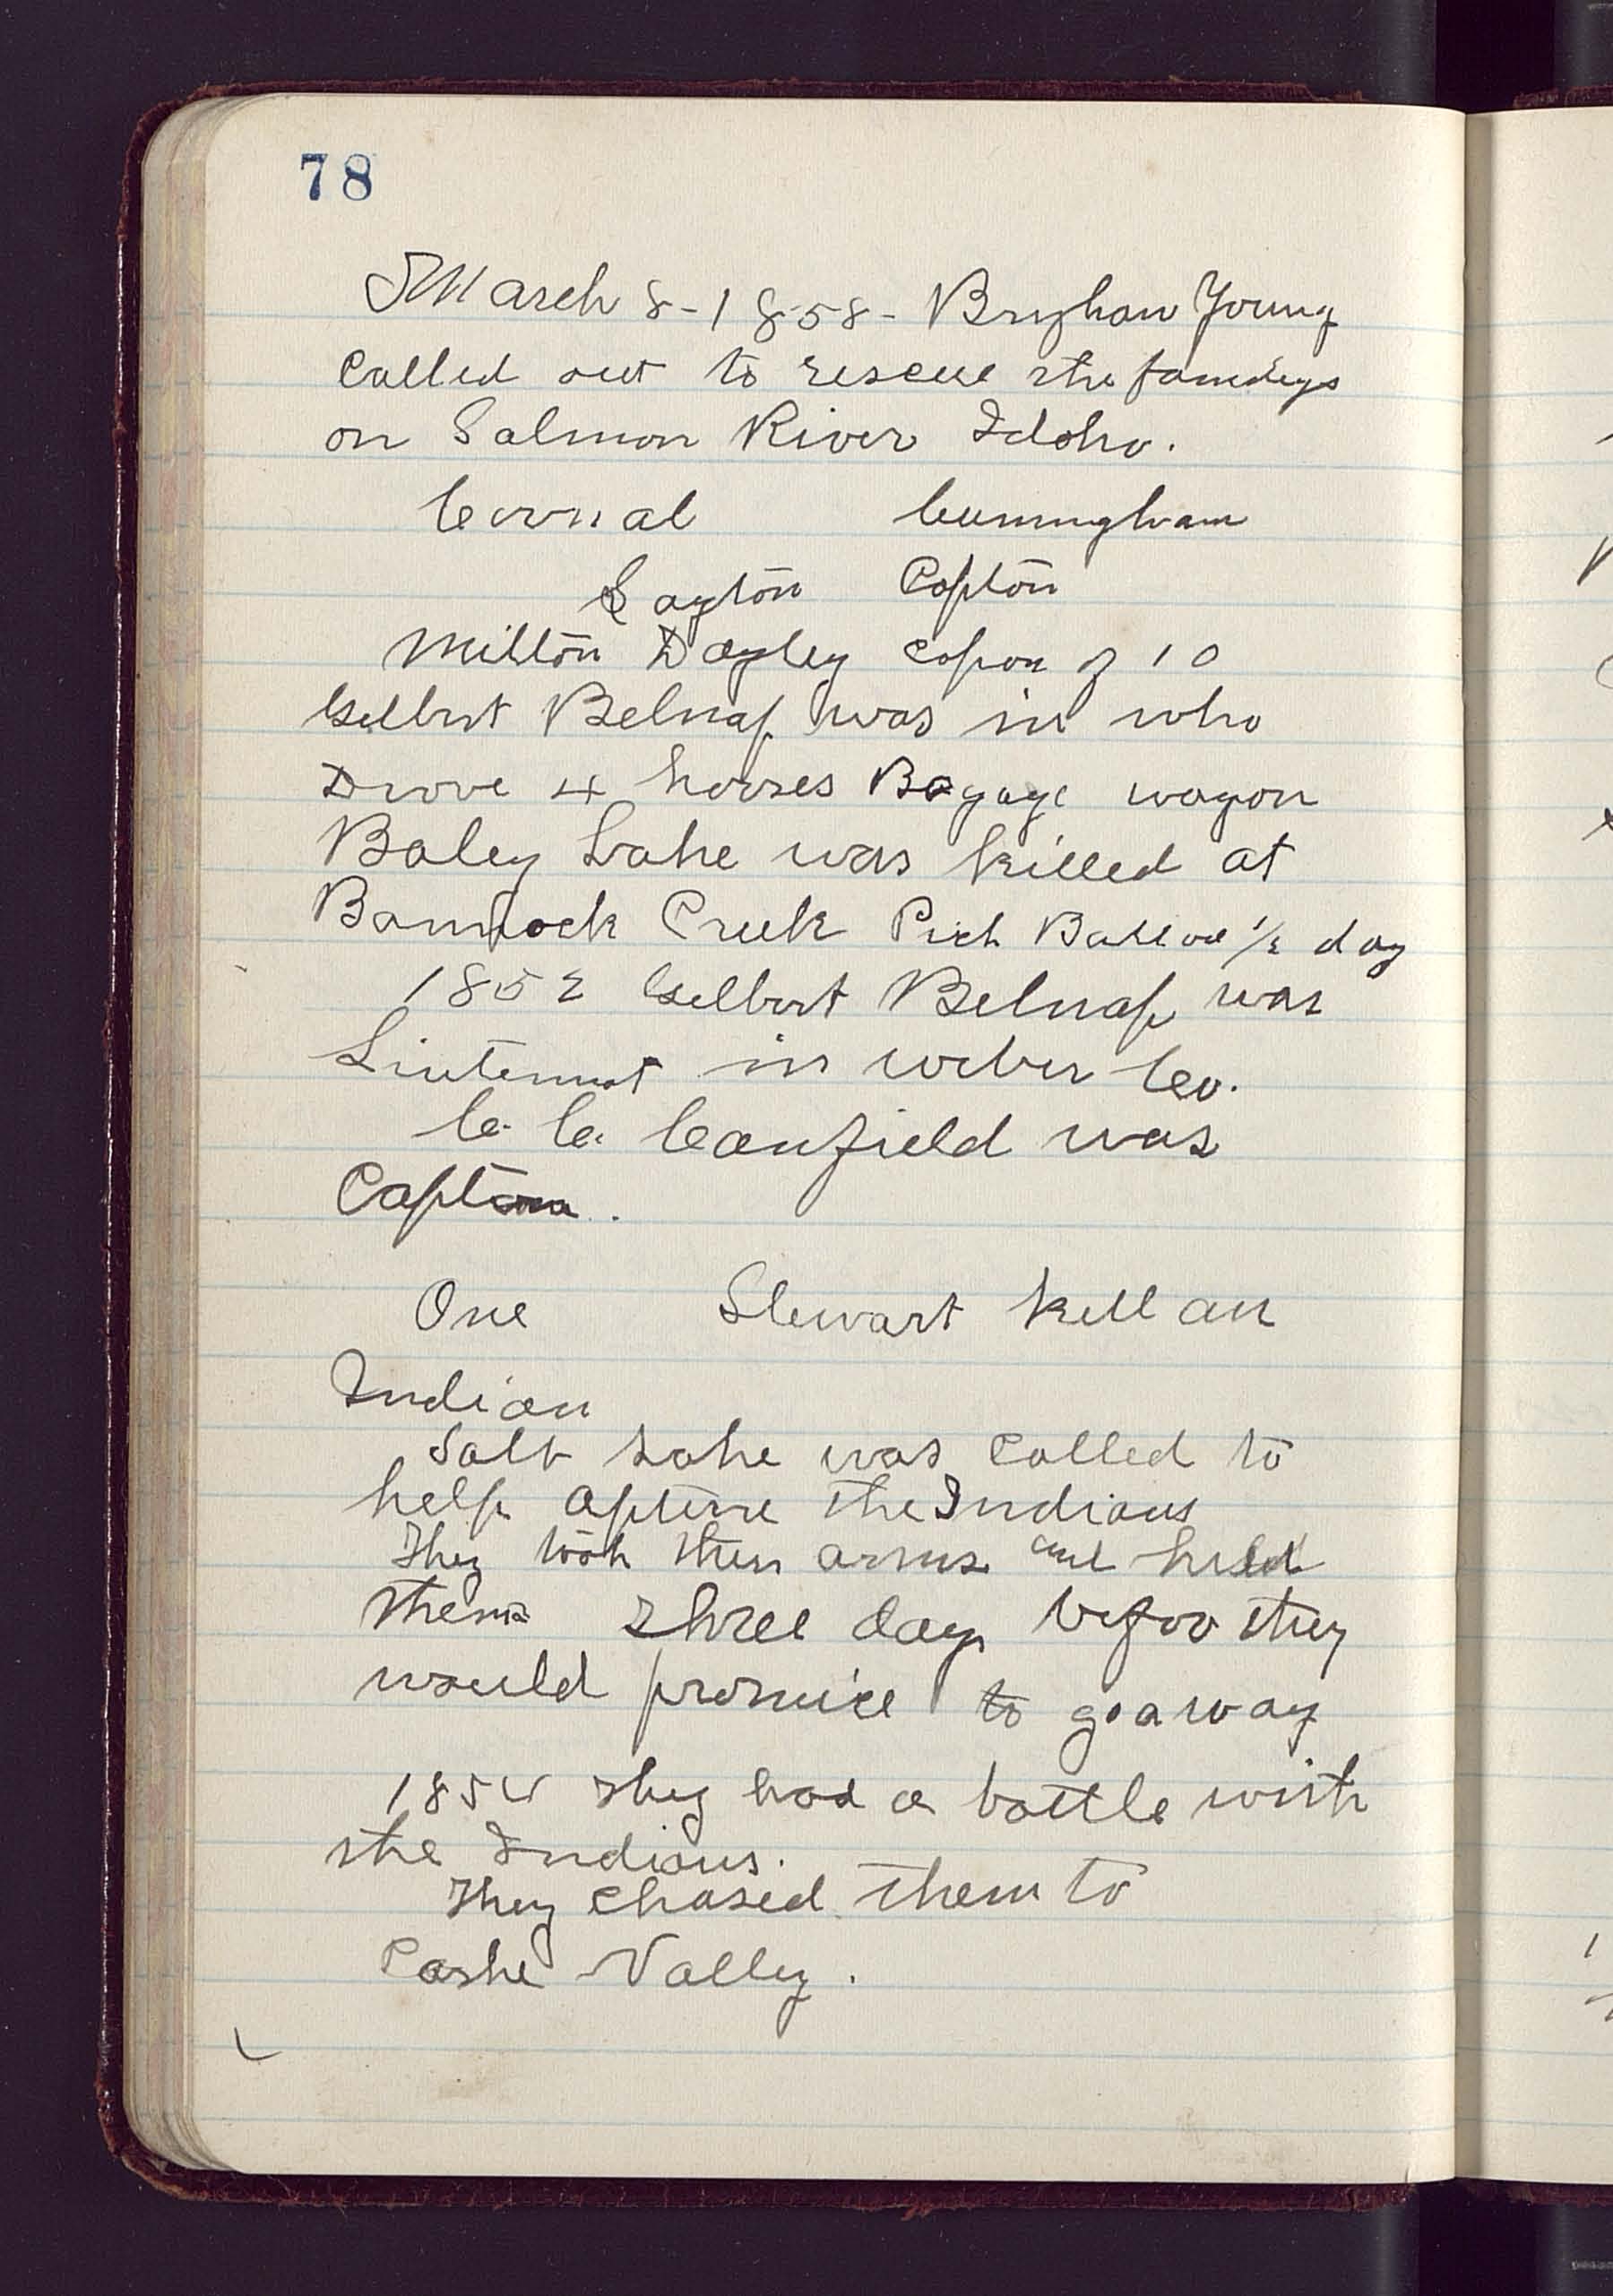 78
March 8-1858- Brighan Young
Called out to rescue the familys
on Salmon River Idoho.
Cornal Cunningham
Layton Capton
Milton Dayley Capon of 10
Gilbert Belnap was in who
Drove 4 horses Bagage wagon
Baley Lake was killed at
Bannock Creek Pich 1/2 day
1852 Gilbert Belnap was
Lieutennat in weber Co.
C. C. Canfield was
Capton.
One Stewart kill an
Indian
Salt Lake was Called to
help apture the Indians
They took their arms and held
them three days befoo they
would promice to go away
1854 they had a battle with
the Indians.
They Chased them to
Cashe Valley.